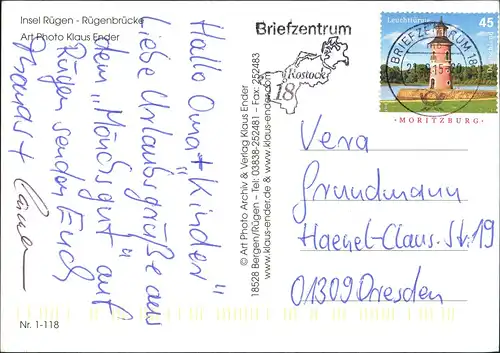 Insel Rügen - Rügenbrücke
Art Photo Klaus Ender
Hallo Oma + Kinder
Liebe Urlaubsgrüße aus
dem „Mönchsgut" auf
Rügen senden Euch
Nr. 1-118
© Art Photo Archiv & Verlag Klaus Ender
18528 Bergen/Rügen - Tel: 03838-252481 - Fax: 252483
www.klaus-ender.de & www.klaus-ender.com
Briefzentrum
Rostock
18
Leuchttürme
45
BRIEFZENTRUM 18
MORITZBURG
Vera
Grundmann
Haenel-Claus-Str. 19
01309 Dresden